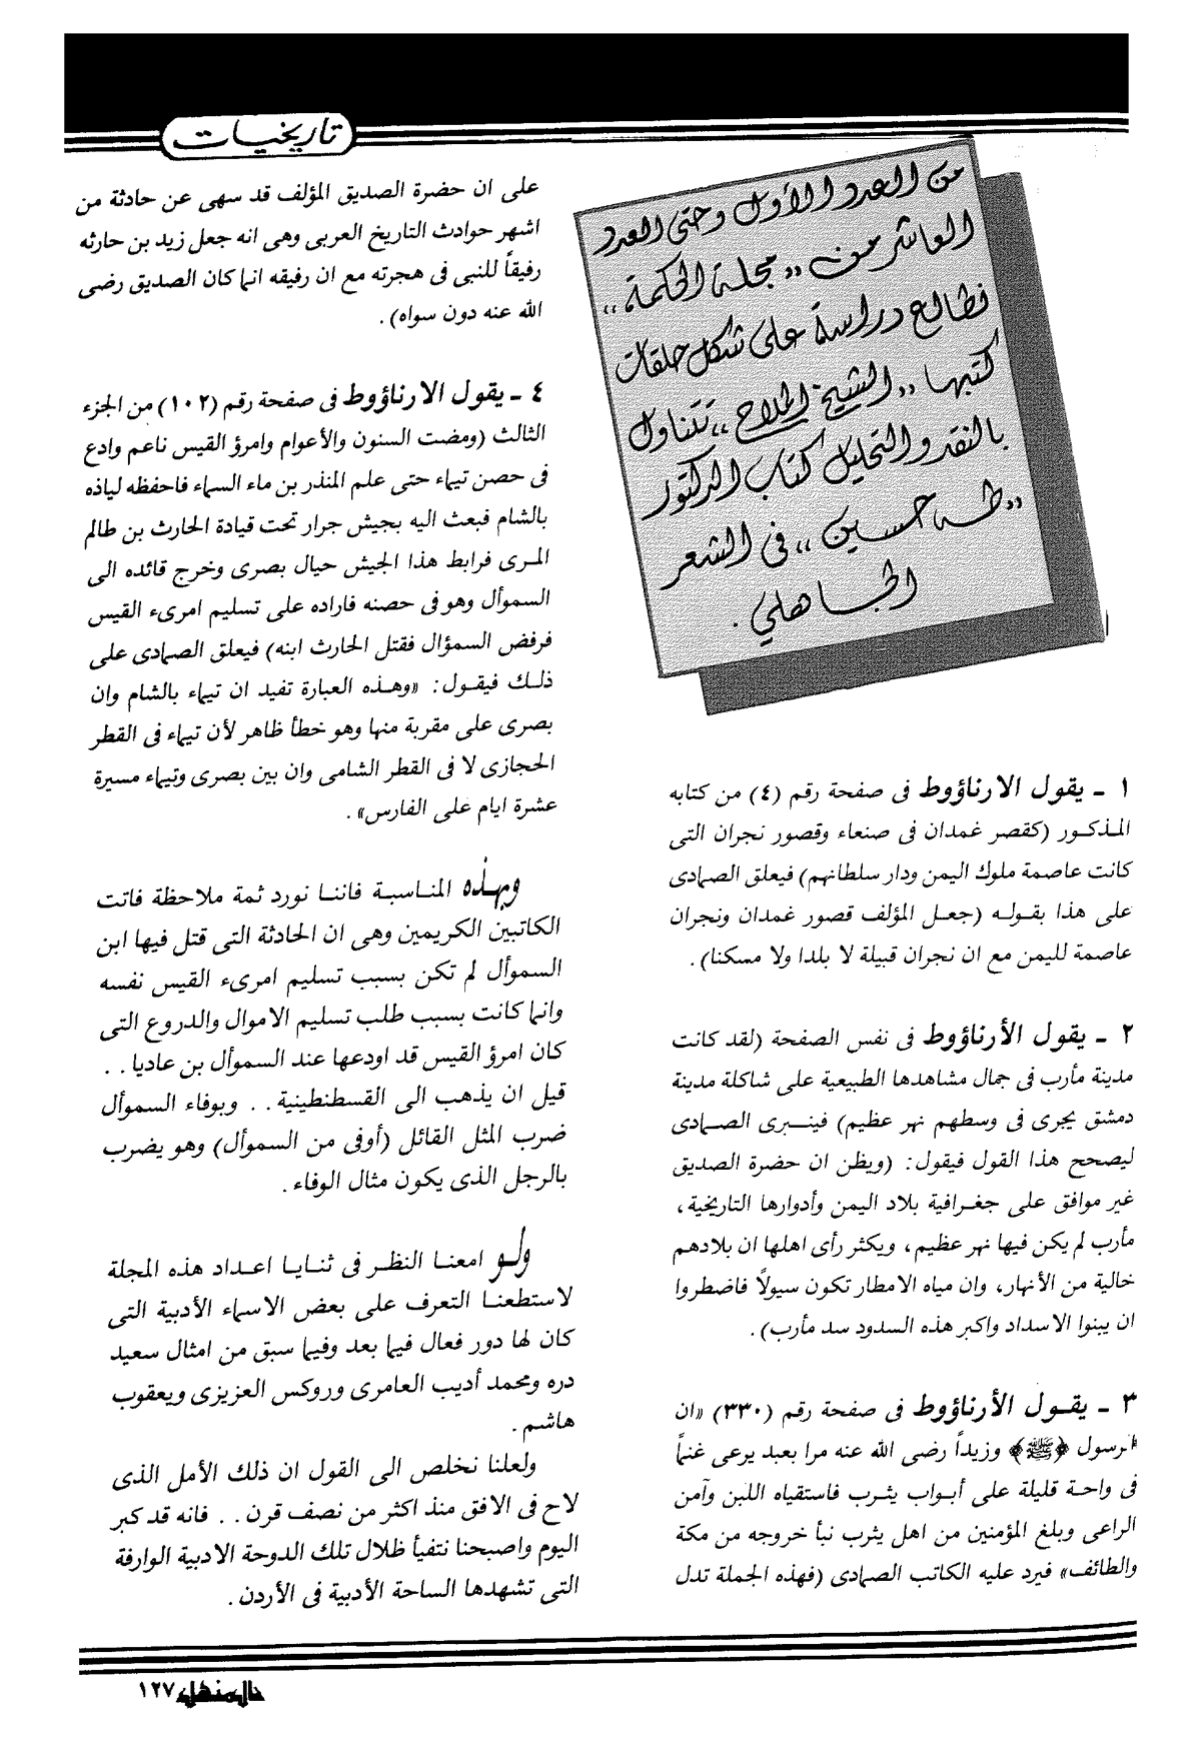 تاريخيات
من العدد الأول وحتى العدد
العاشر من «مجلة الحكمة»
نطالع دراسة على شكل حلقات
كتبها «الشيخ الملاح» تتناول
بالنقد والتحليل كتاب الدكتور
«طه حسين» في الشعر
الجاهلي.
١ ـ يقول الارناؤوط فى صفحة رقم (٤) من كتابه
المذكور (كقصر غمدان فى صنعاء وقصور نجران التى
كانت عاصمة ملوك اليمن ودار سلطانهم) فيعلق الصمادى
على هذا بقوله (جعل المؤلف قصور غمدان ونجران
عاصمة لليمن مع ان نجران قبيلة لا بلدا ولا مسكنا).
٢ ـ يقول الأرناؤوط فى نفس الصفحة (لقد كانت
مدينة مأرب فى جمال مشاهدها الطبيعية على شاكلة مدينة
دمشق يجرى فى وسطهم نهر عظيم) فينبرى الصمادى
ليصحح هذا القول فيقول: (ويظن ان حضرة الصديق
غير موافق على جغرافية بلاد اليمن وأدوارها التاريخية،
مأرب لم يكن فيها نهر عظيم، ويكثر رأى اهلها ان بلادهم
خالية من الأنهار، وان مياه الامطار تكون سيولاً فاضطروا
ان يبنوا الاسداد واكبر هذه السدود سد مأرب).
٣ ـ يقول الأرناؤوط فى صفحة رقم (٣٣٠) «ان
الرسول ﴿ﷺ﴾ وزيداً رضى الله عنه مرا بعبد يرعى غنماً
فى واحة قليلة على أبواب يثرب فاستقياه اللبن وآمن
الراعى وبلغ المؤمنين من اهل يثرب نبأ خروجه من مكة
والطائف» فيرد عليه الكاتب الصمادى (فهذه الجملة تدل
على ان حضرة الصديق المؤلف قد سهى عن حادثة من
اشهر حوادث التاريخ العربى وهى انه جعل زيد بن حارثه
رفيقاً للنبى فى هجرته مع ان رفيقه انما كان الصديق رضى
الله عنه دون سواه).
٤ ـ يقول الارناؤوط فى صفحة رقم (١٠٢) من الجزء
الثالث (ومضت السنون والأعوام وامرؤ القيس ناعم وادع
فى حصن تيماء حتى علم المنذر بن ماء السماء فاحفظه لياذه
بالشام فبعث اليه بجيش جرار تحت قيادة الحارث بن ظالم
المرى فرابط هذا الجيش حيال بصرى وخرج قائده الى
السموأل وهو فى حصنه فاراده على تسليم امرىء القيس
فرفض السمؤال فقتل الحارث ابنه) فيعلق الصمادى على
ذلك فيقول: «وهذه العبارة تفيد ان تيماء بالشام وان
بصرى على مقربة منها وهو خطأ ظاهر لأن تيماء فى القطر
الحجازى لا فى القطر الشامى وان بين بصرى وتيماء مسيرة
عشرة ايام على الفارس».
وبهذه المناسبة فاننا نورد ثمة ملاحظة فاتت
الكاتبين الكريمين وهى ان الحادثة التى قتل فيها ابن
السموأل لم تكن بسبب تسليم امرىء القيس نفسه
وانما كانت بسبب طلب تسليم الاموال والدروع التى
كان امرؤ القيس قد اودعها عند السموأل بن عاديا..
قيل ان يذهب الى القسطنطينية.. وبوفاء السموأل
ضرب المثل القائل (أوفى من السموأل) وهو يضرب
بالرجل الذى يكون مثال الوفاء.
ولو امعنا النظر فى ثنايا اعداد هذه المجلة
لاستطعنا التعرف على بعض الاسماء الأدبية التى
كان لها دور فعال فيما بعد وفيما سبق من امثال سعيد
دره ومحمد أديب العامرى وروكس العزيزى ويعقوب
هاشم.
ولعلنا نخلص الى القول ان ذلك الأمل الذى
لاح فى الافق منذ اكثر من نصف قرن.. فانه قد كبر
اليوم واصبحنا نتفيأ ظلال تلك الدوحة الادبية الوارفة
التى تشهدها الساحة الأدبية فى الأردن.
المنهل ١٢٧